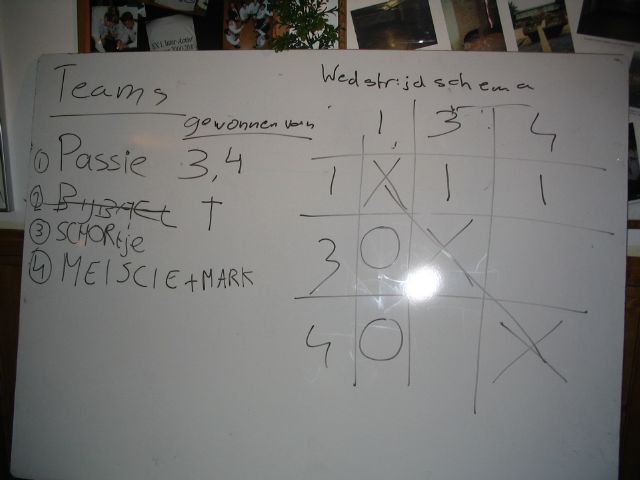 Teams
gewonnen van
① Passie 3,4
② †
③ SCHORtje
④ MEISCIE + MARK
Wedstrijdschema
1 3 4
1 X 1 1
3 O X
4 O X